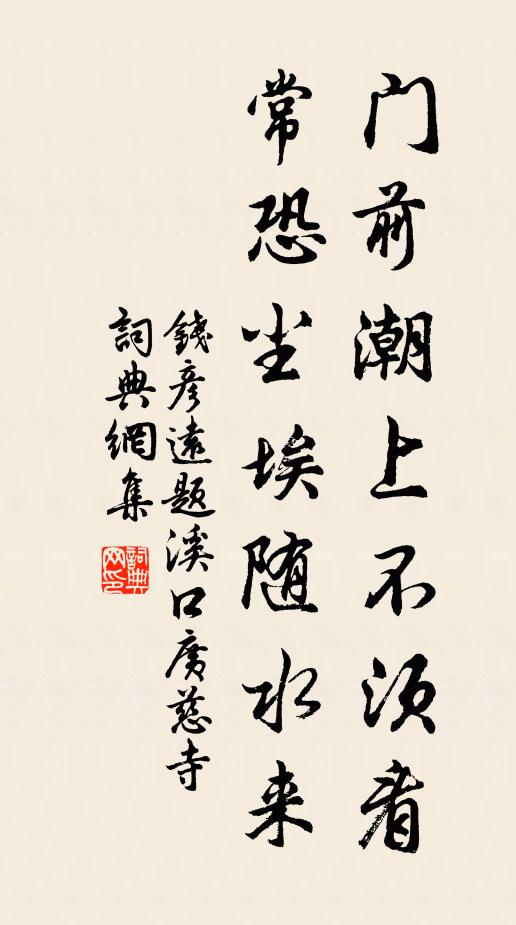 门前潮上不须看
常恐尘埃随水来
錢彦遠題溪口廣慈寺
詞典網集
詞典网印